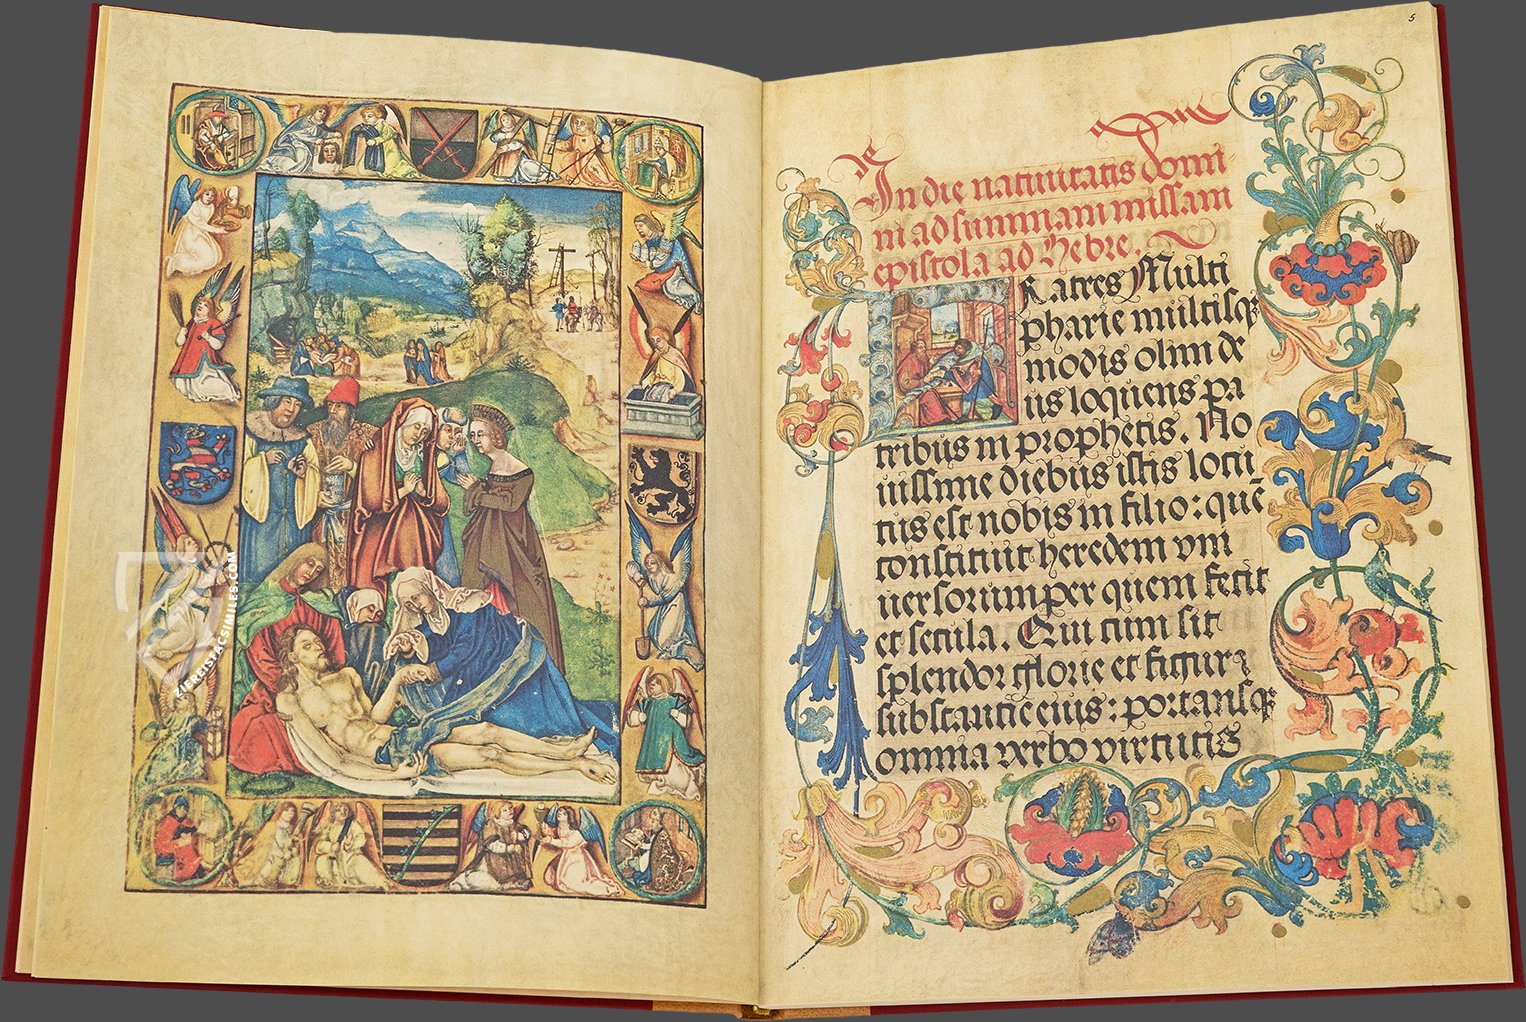 5
In die nativitatis domi-
ni ad summam missam
epistola ad Hebre.
Fratres Multi
pharie multisqꝫ
modis olim de
us loquens pa
tribus in prophetis. No
uissime diebus istis locu
tus est nobis in filio: quē
constituit heredem vni
uersorum per quem fecit
et secula. Qui cum sit
splendor glorie et figura
substantie eius: portansqꝫ
omnia verbo virtutis
ZIEREIS FACSIMILES.COM